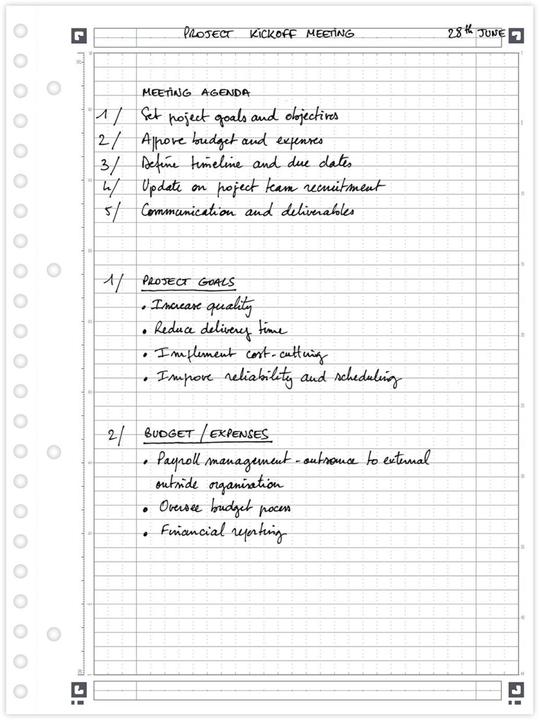 PROJECT KICKOFF MEETING 28th JUNE
MEETING AGENDA
1/ Set project goals and objectives
2/ Approve budget and expenses
3/ Define timeline and due dates
4/ Update on project team recruitment
5/ Communication and deliverables
1/ PROJECT GOALS
• Increase quality
• Reduce delivery time
• Implement cost-cutting
• Improve reliability and scheduling
2/ BUDGET / EXPENSES
• Payroll management - outsource to external
outside organisation
• Oversee budget process
• Financial reporting